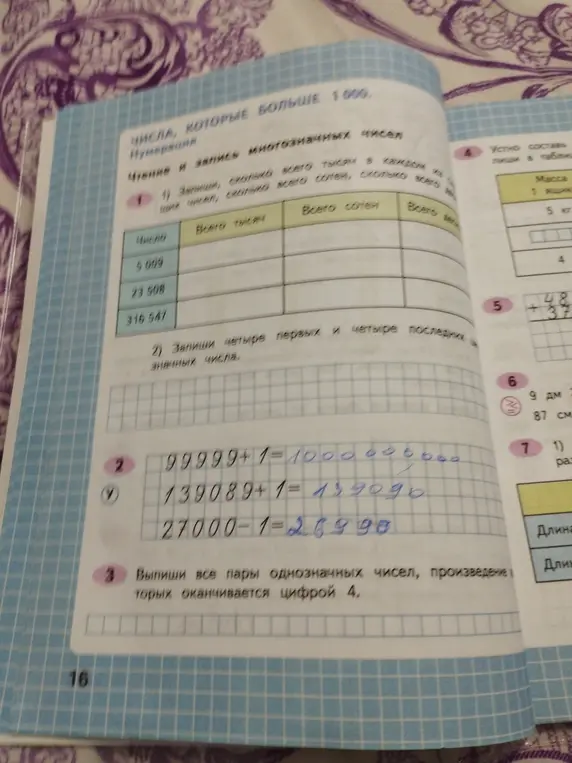 ЧИСЛА, КОТОРЫЕ БОЛЬШЕ 1 000.
Нумерация
Чтение и запись многозначных чисел
1 1) Запиши, сколько всего тысяч в каждом из
чисел, сколько всего сотен, сколько всего
Число Всего тысяч Всего сотен Всего
5 009
23 508
316 547
2) Запиши четыре первых и четыре последних
значных числа.
2 99999+1=
У 139089+1= 139090
27000-1=
3 Выпиши все пары однозначных чисел, произведение
торых оканчивается цифрой 4.
16
4 Устно составь
пиши в таблиц
Масса
1 ящик
5 кг
4
5 + 48
37
6
9 дм
87 см
7 1)
раз
Длина
Длин